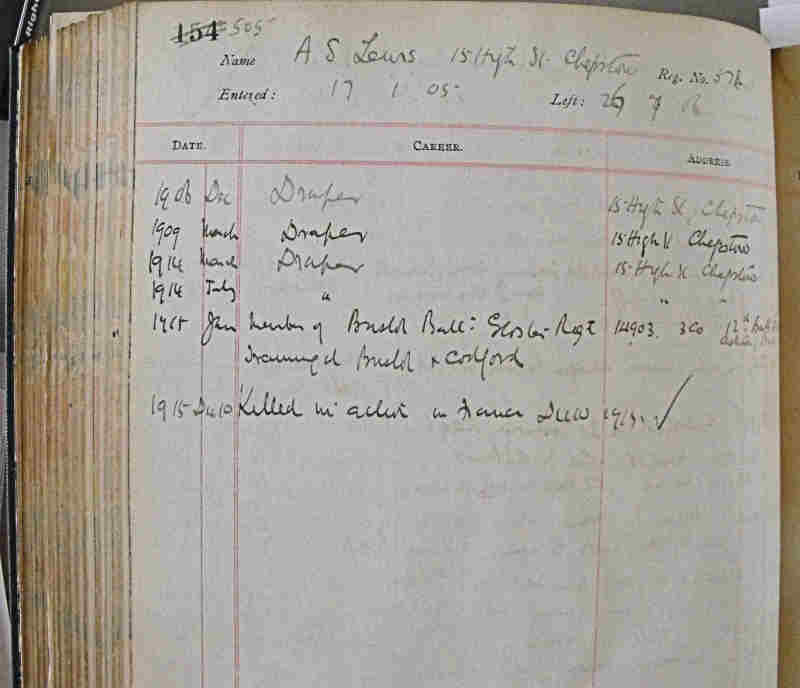 154 505
Name A S Lewis 15 High St. Chepstow Reg. No. 576
Entered: 17 1 05 Left: 26 7 06
DATE. CAREER. ADDRESS.
1906 Dec Draper 15 High St, Chepstow
1909 March Draper 15 High St Chepstow
1914 March Draper 15 High St Chepstow
1914 July " " "
" 1915 Jan Member of Bristol Batt: Gloster Regt 14903. 3 Co 12th Batt
Training at Bristol & Codford
1915 Dec 10 Killed in action in France Dec 10 1915. ✓